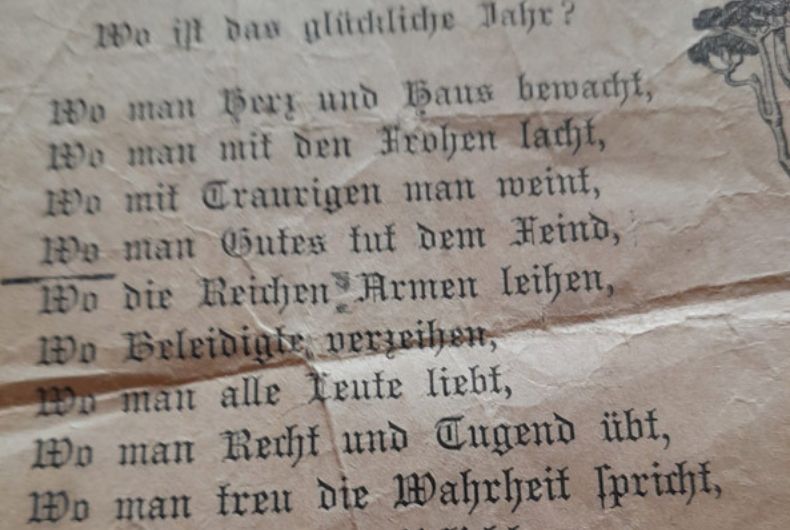 Wo ist das glückliche Jahr?
Wo man Herz und Haus bewacht,
Wo man mit den Frohen lacht,
Wo mit Traurigen man weint,
Wo man Gutes tut dem Feind,
Wo die Reichen Armen leihen,
Wo Beleidigte verzeihen,
Wo man alle Leute liebt,
Wo man Recht und Tugend übt,
Wo man treu die Wahrheit spricht,